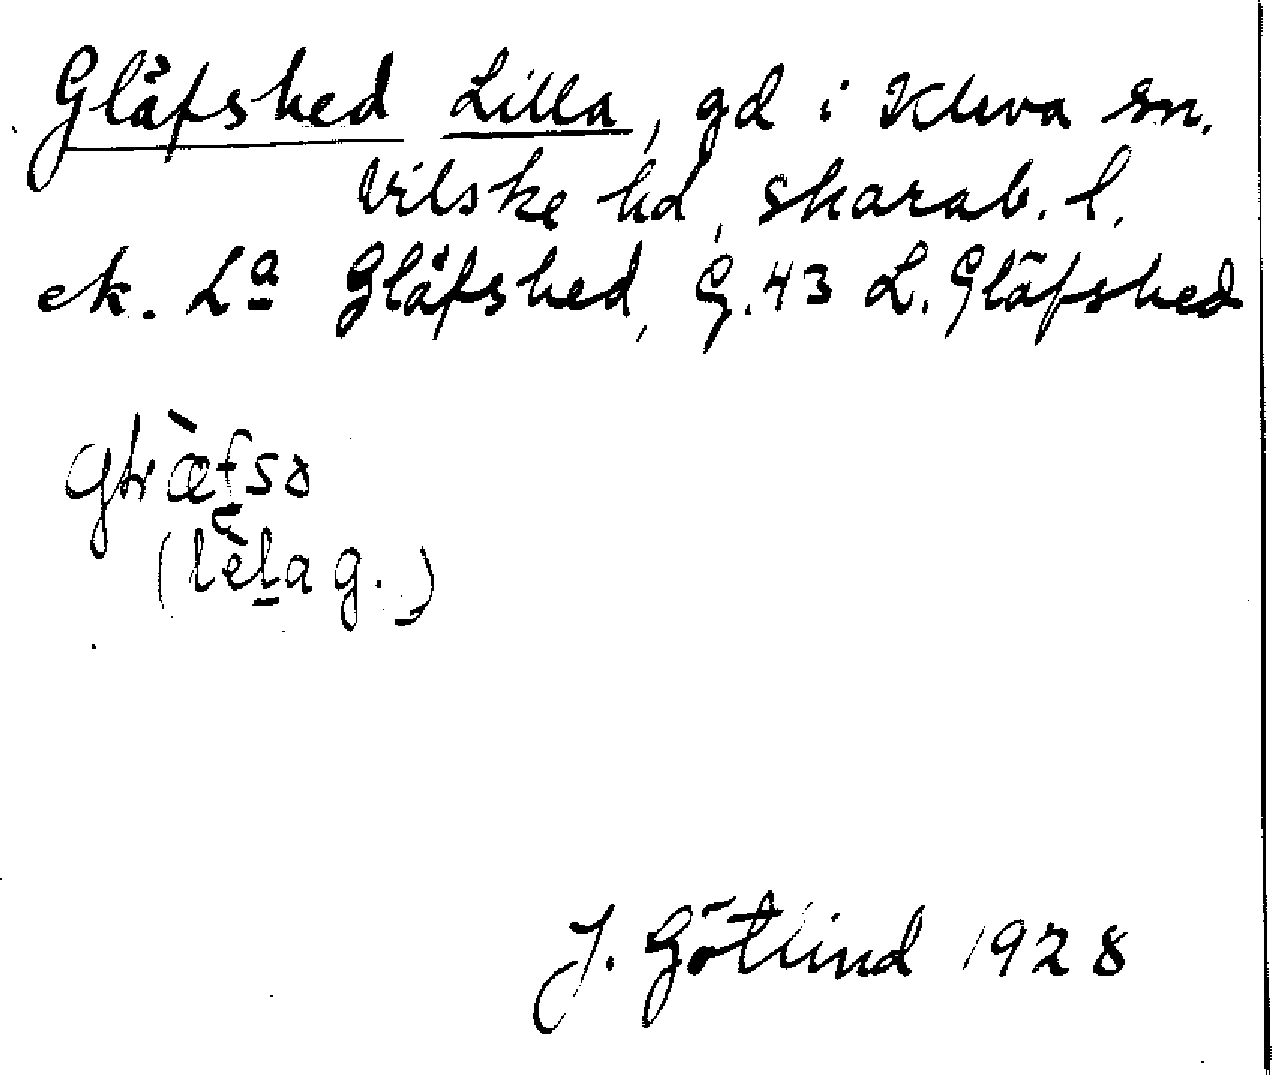 Gläfshed Lilla, gd i Kleva sn.
Vilske hd, Skarab. l.
ek. La Gläfshed, G. 43 L. Gläfshed
(lèla g.)
J. Götlind 1928